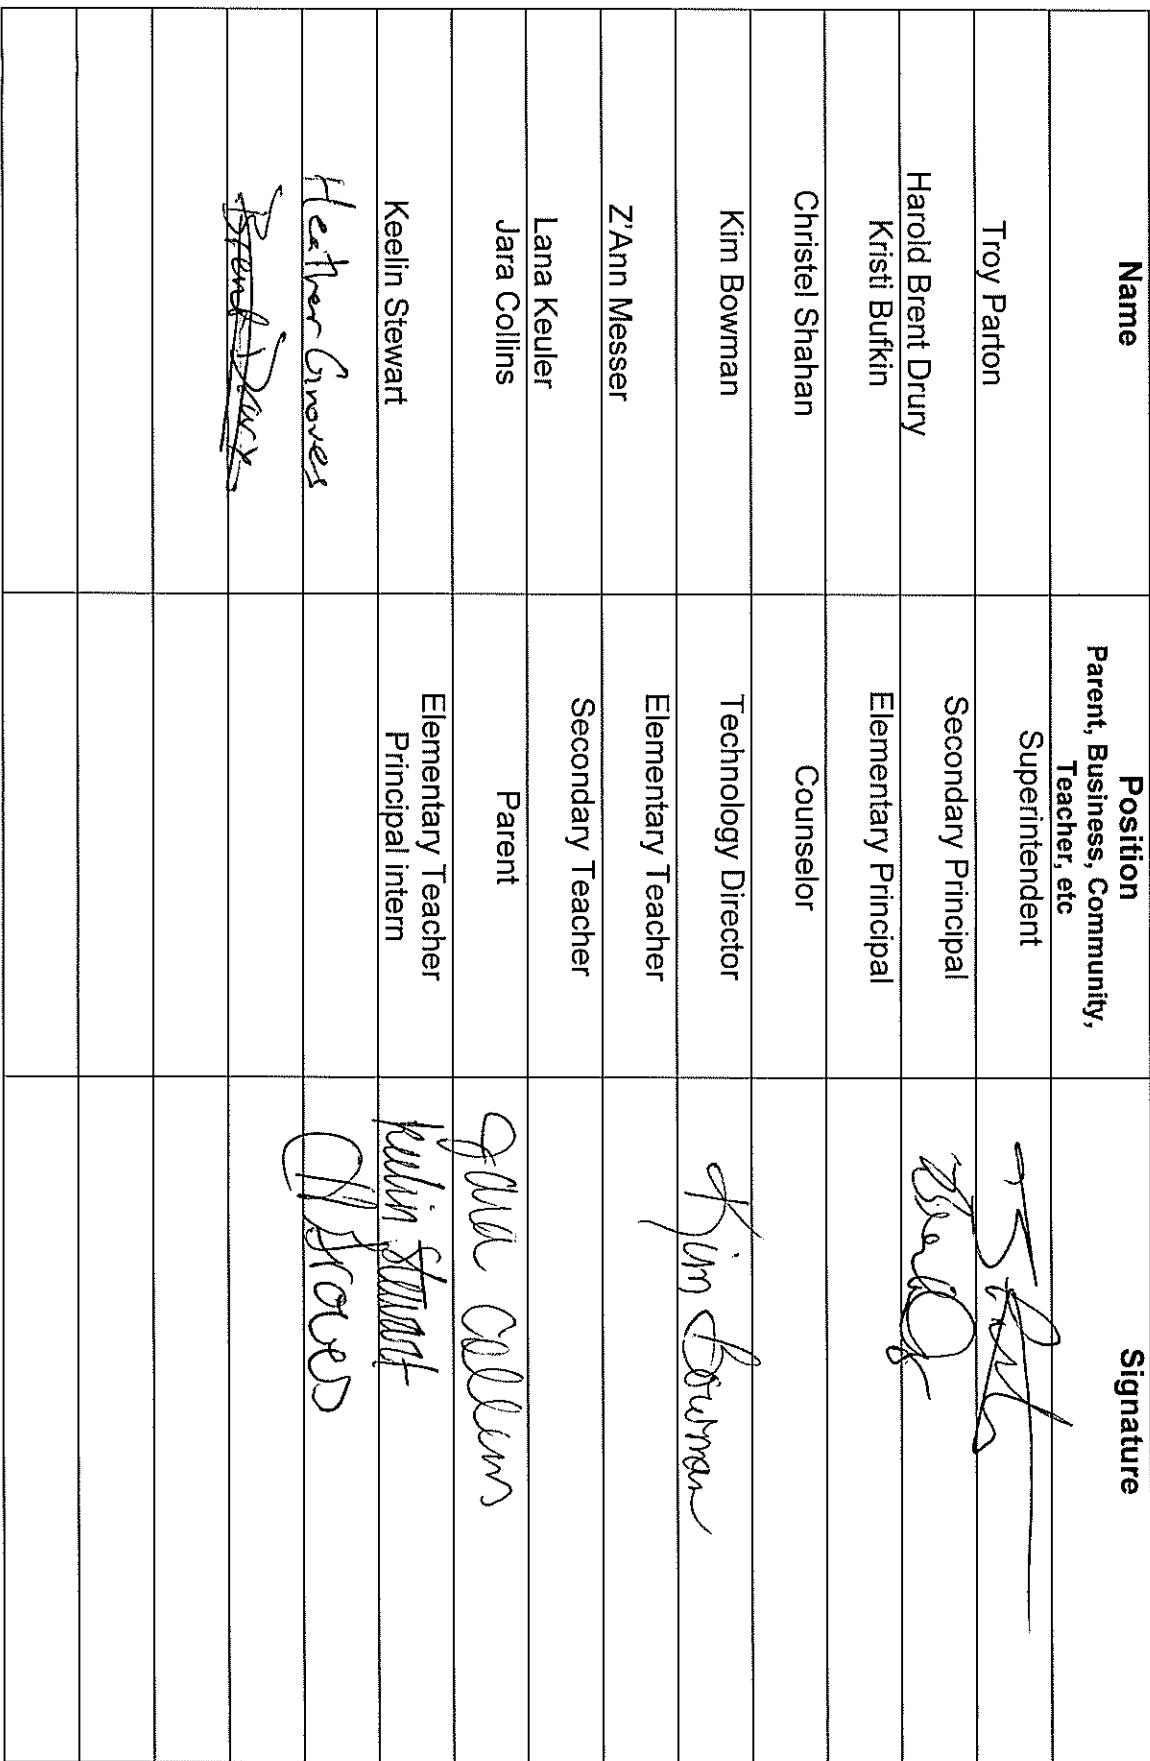 Name Position Signature
Parent, Business, Community,
Teacher, etc
Troy Parton Superintendent
Harold Brent Drury Secondary Principal
Kristi Bufkin Elementary Principal
Christel Shahan Counselor
Kim Bowman Technology Director Kim Bowman
Z'Ann Messer Elementary Teacher
Lana Keuler Secondary Teacher
Jara Collins Parent Jara Collins
Keelin Stewart Elementary Teacher Keelin Stewart
Principal intern
Heather Groves H Groves
Brent Drury